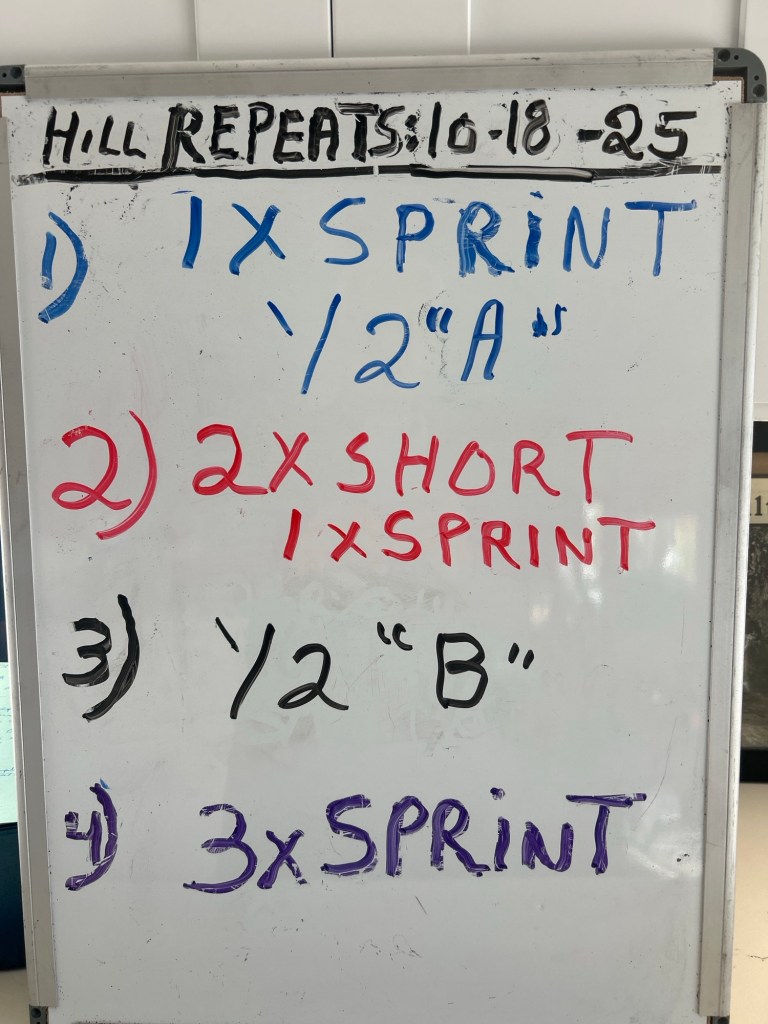 HILL REPEATS: 10-18-25
1) 1X SPRINT
1/2 "A"
2) 2X SHORT
1X SPRINT
3) 1/2 "B"
4) 3X SPRINT